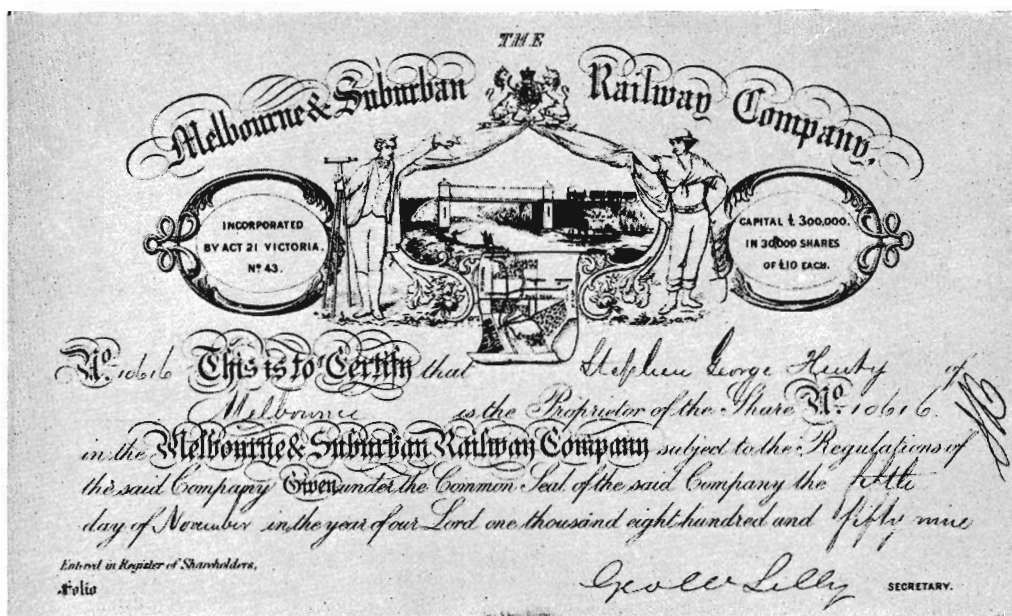 THE
Melbourne & Suburban Railway Company,
INCORPORATED
BY ACT 21 VICTORIA.
No 43.
CAPITAL £ 300,000.
IN 30,000 SHARES
OF £10 EACH.
No 10616 This is to Certify that Stephen George Henty of
Melbourne is the Proprietor of the Share No 10616.
in the Melbourne & Suburban Railway Company subject to the Regulations of
the said Company Given under the Common Seal of the said Company the
day of November in the year of our Lord one thousand eight hundred and fifty nine
Entered in Register of Shareholders,
Folio
Geo W Lilly SECRETARY.